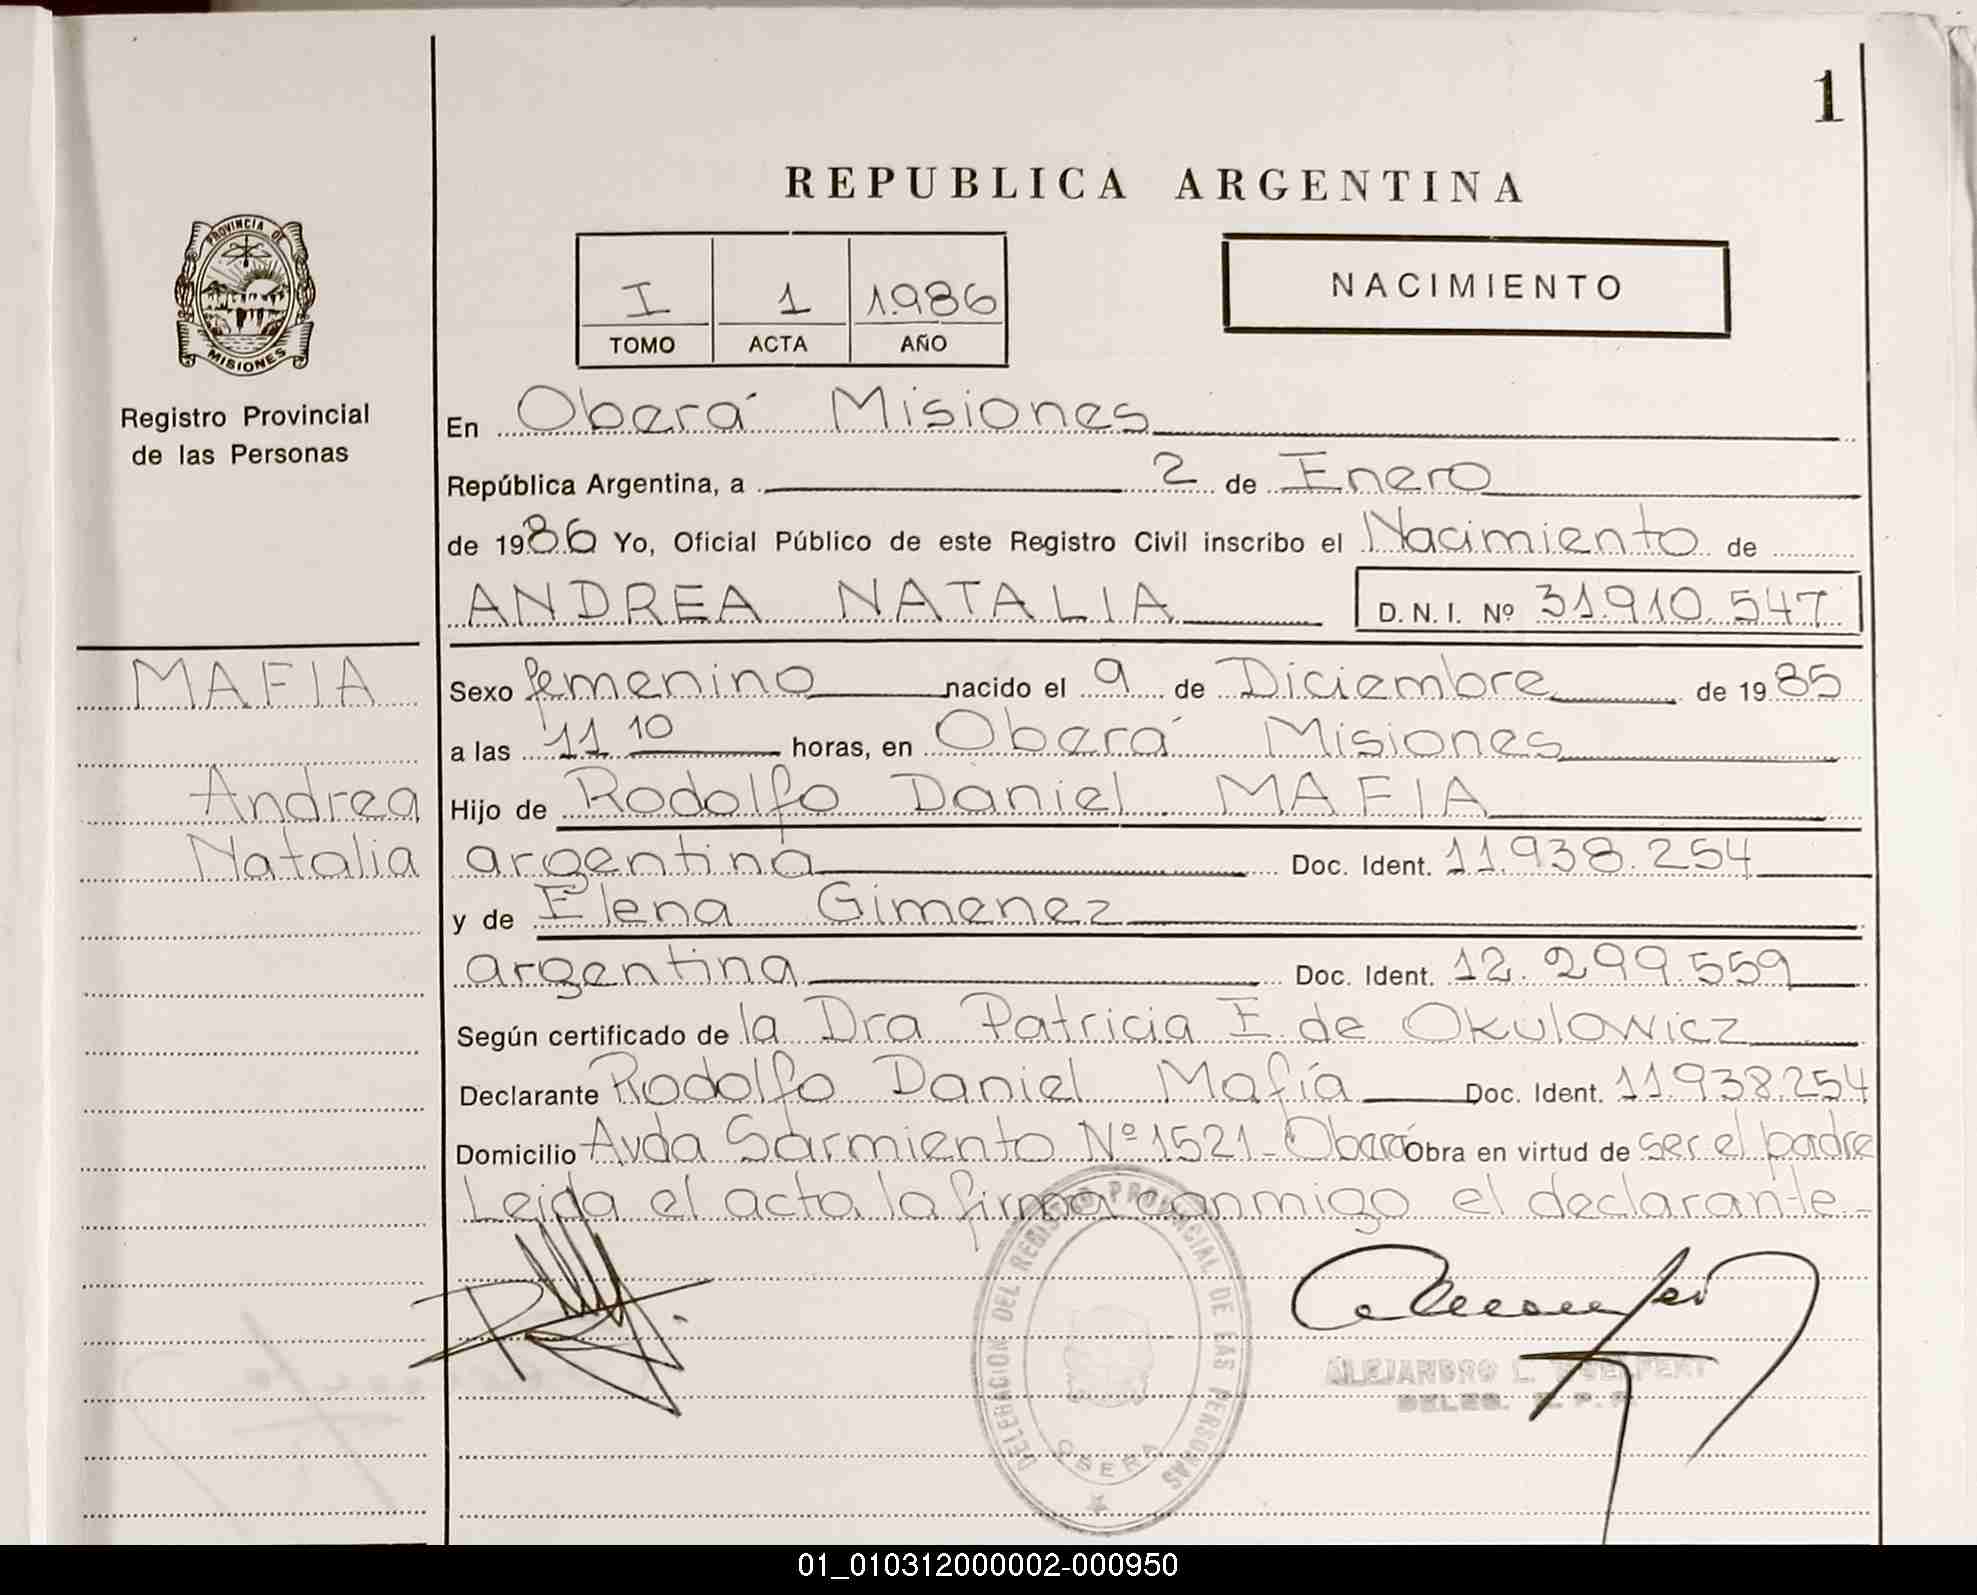 1
REPUBLICA ARGENTINA
PROVINCIA DE
MISIONES
I 1 1.986
TOMO ACTA AÑO
NACIMIENTO
Registro Provincial
de las Personas
En Oberá Misiones
República Argentina, a 2 de Enero
de 1986 Yo, Oficial Público de este Registro Civil inscribo el Nacimiento de
ANDREA NATALIA D. N. I. Nº 31.910.547
MAFIA
Andrea
Natalia
Sexo femenino nacido el 9 de Diciembre de 1985
a las 11 10 horas, en Oberá Misiones
Hijo de Rodolfo Daniel MAFIA
argentina Doc. Ident. 11.938.254
y de Elena Gimenez
argentina Doc. Ident. 12.299.559
Según certificado de la Dra Patricia E. de Okulowicz
Declarante Rodolfo Daniel Mafía Doc. Ident. 11.938.254
Domicilio Avda Sarmiento Nº 1521 - Oberá Obra en virtud de ser el padre
Leida el acta la firma conmigo el declarante-
DELEGACION DEL REGISTRO PROVINCIAL DE LAS PERSONAS
OBERA
ALEJANDRO L.
01_010312000002-000950